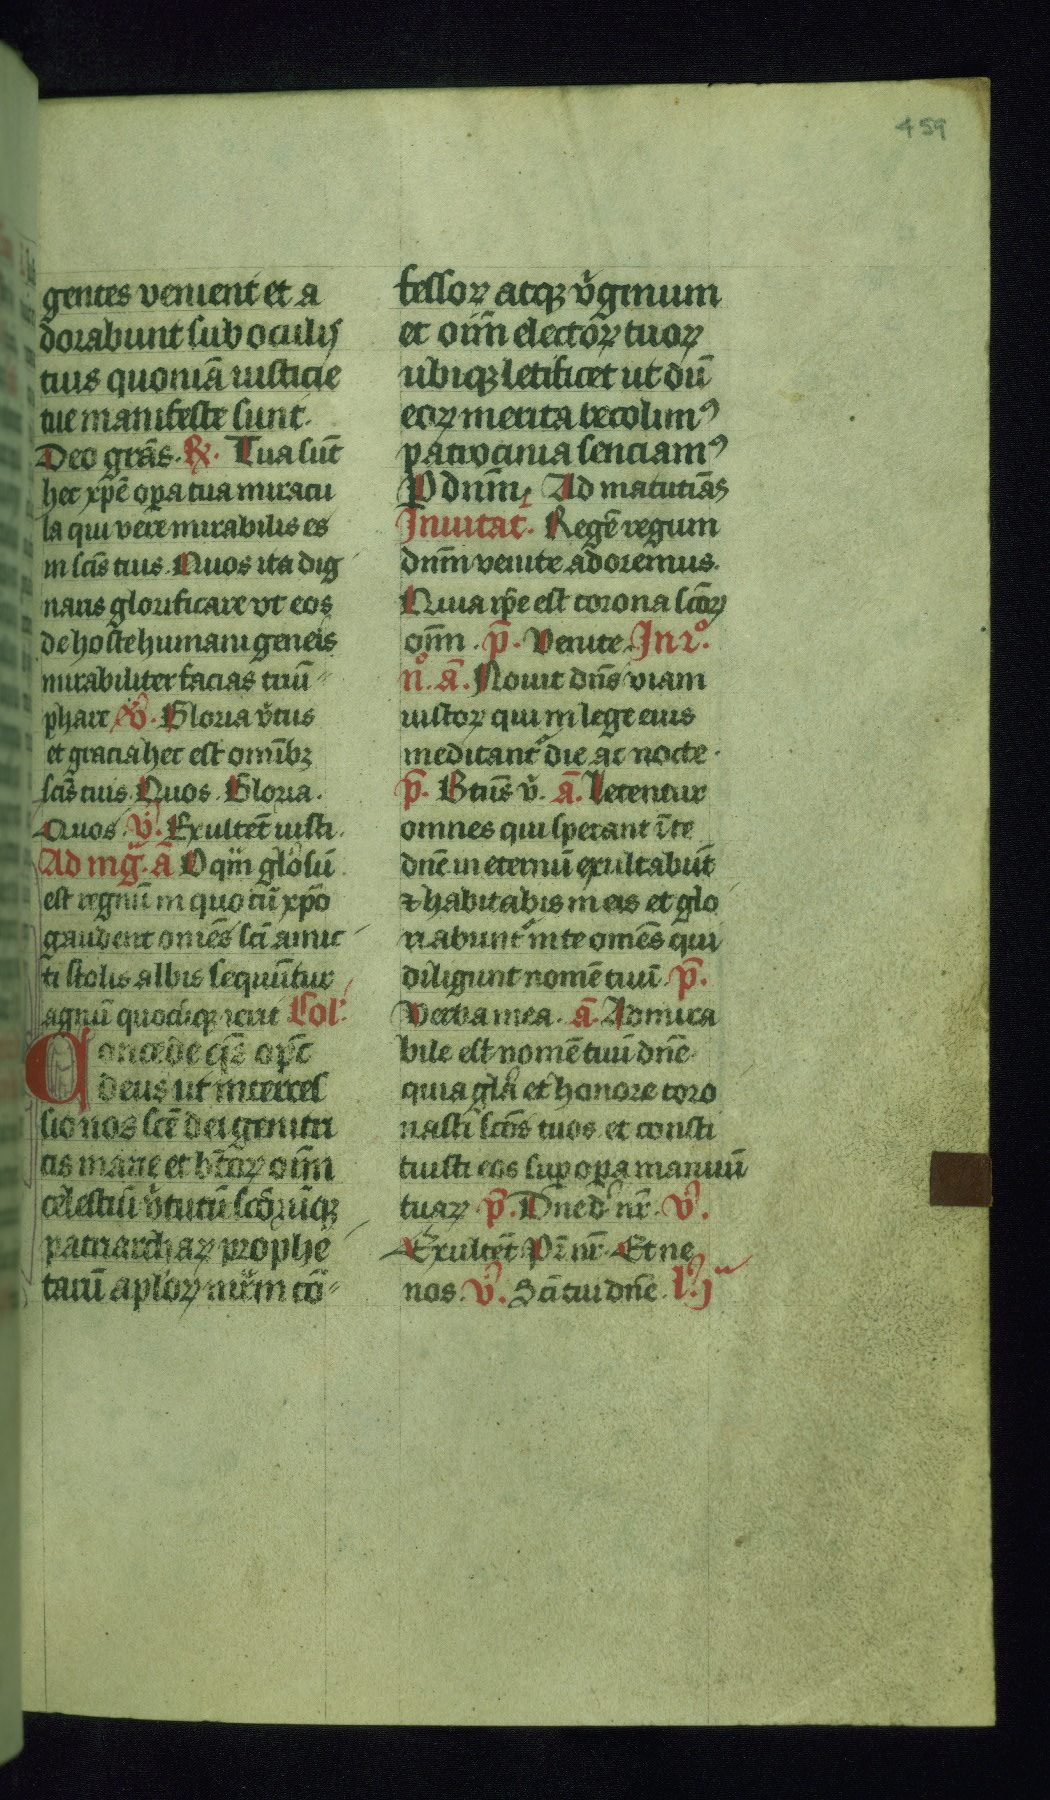 459
gentes venient et a
dorabunt sub oculis
tuis quoniā iusticie
tue manifeste sunt.
Deo grās. R. Tua sūt
hec xp̄e oꝑa tua miracu
la qui vere mirabilis es
in scīs tuis. Quos ita dig
naris glorificare vt eos
de hoste humani gen̄eis
mirabiliter facias triū
phare V̓. Gloria v̓tus
et gracia hec est om̄ibꝫ
scīs tuis. Quos. Gloria.
Quos. V̓. Exultēt iusti.
Ad mḡ. ā O qm̄ glōsū
est regnū in quo cū xp̄o
gaudent om̄es scī amic
ti stolis albis sequūtur
agnū quocūqꝫ ierit Col̓.
Concede q̄s op̄c
deus ut interces
sio nos scē dei genitri
cis marie et btōꝝ oīm
celestiū v̓tutū scōrūqꝫ
patriarchaꝝ prophe
tarū aplōꝝ mr̄m cō
fessoꝝ atqꝫ v̓ginum
et oīm electōꝝ tuoꝝ
ubiqꝫ letificet ut dū
eoꝝ merita recolimꝰ
patrocinia senciamꝰ
P dnm̄. Ad matutiās
Inuitat̄. Regē regum
dnm̄ venite adoremus.
Quia ip̄e est corona scōꝝ
om̄. p̄. Venite. In ı.º
nº. ā. Nouit dn̄s viam
iustoꝝ qui in lege eius
meditant̓ die ac nocte.
p̄. Btūs v̓. ā. Letentur
omnes qui sperant ī te
dn̄e in eternū exultabūt
⁊ habitabis in eis et glo
riabunt̓ in te om̄es qui
diligunt nomē tuū p̄.
Verba mea. ā. Admira
bile est nomē tuū dn̄e
quia glā et honore coro
nasti scōs tuos et consti
tuisti eos suꝑ oꝑa manuū
tuaꝝ p̄. Dn̄e d̓ nr̄. V̓.
Exultēt Pr̄ nr̄. Et ne
nos. V̓. Scī tui dn̄e. l̓. jª